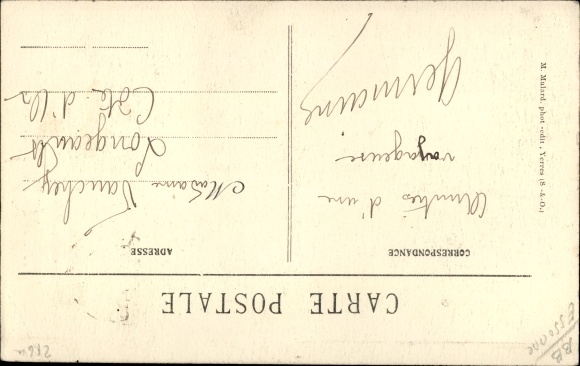 CARTE POSTALE
CORRESPONDANCE
Amitiés d'une
voyageuse
Germaine
ADRESSE
Madame
Vauchey
Longeault
Côte d'Or
M. Mulard, phot.-édit., Yerres (S.-&-O.)
BB
Essonne